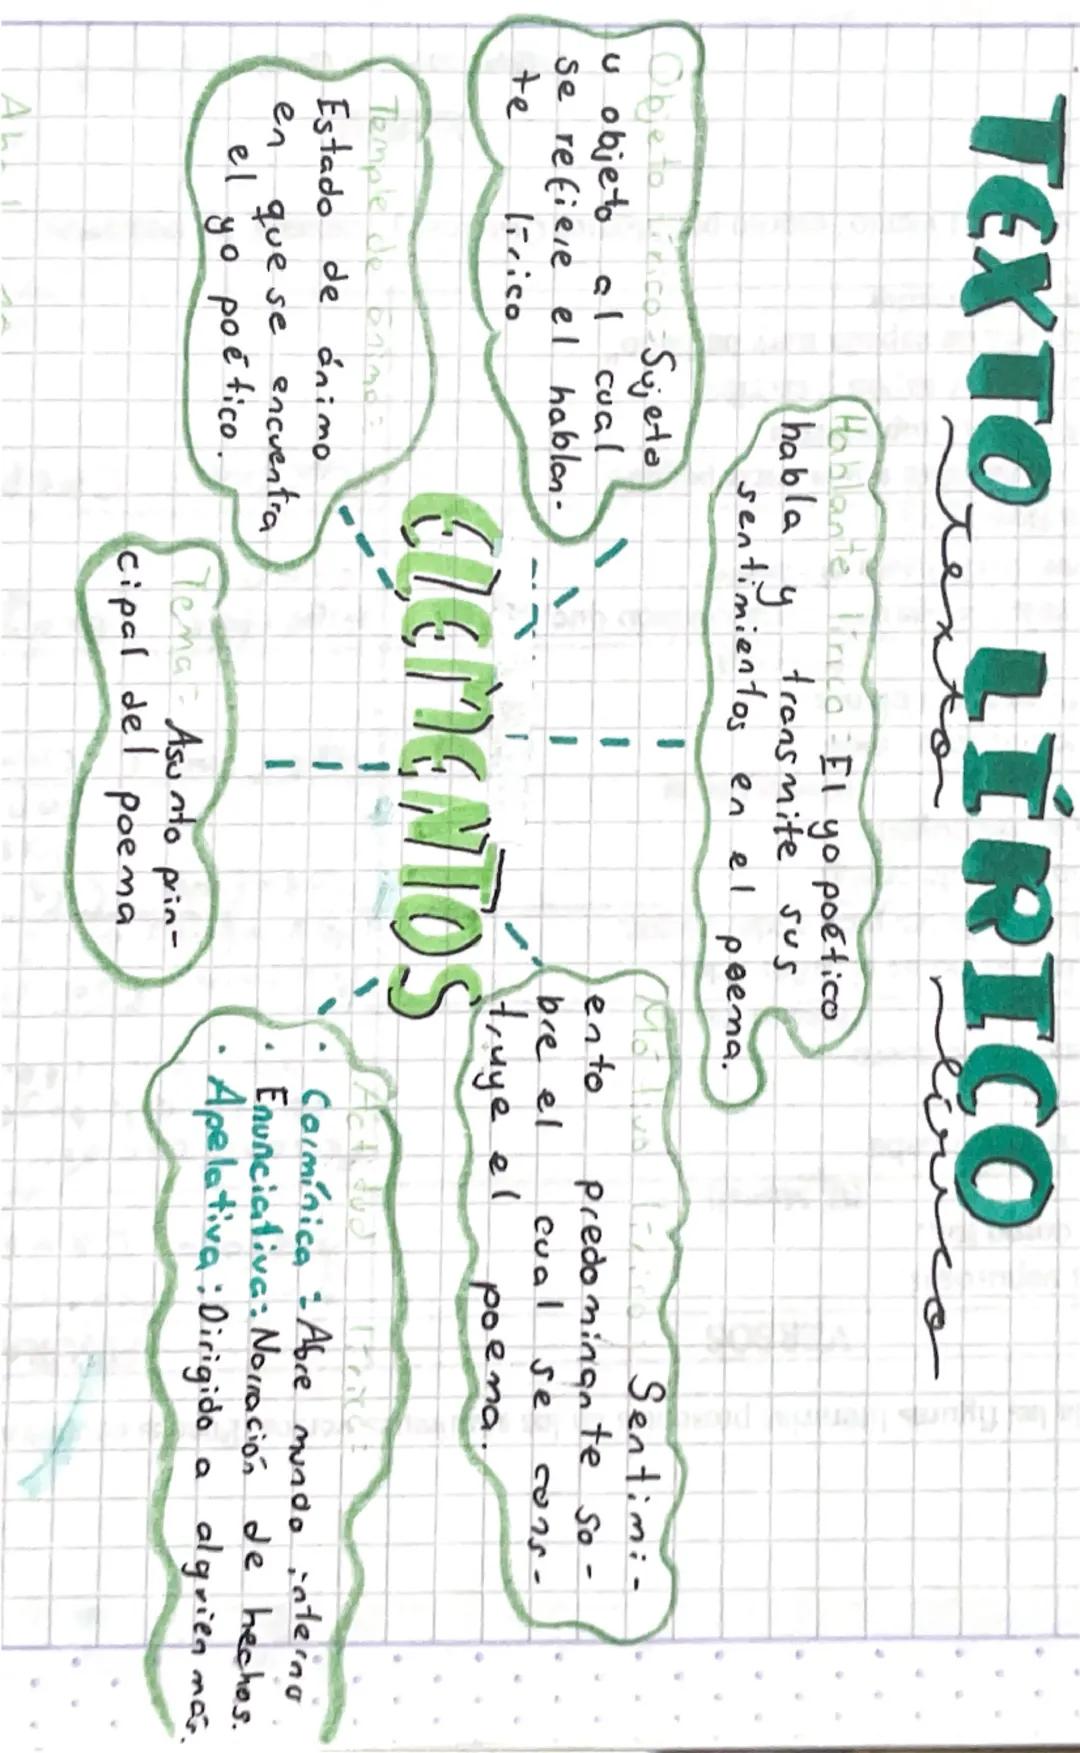 TEXTO LÍRICO
Texto lírico
Hablante lírico: El yo poético
habla y transmite sus
sentimientos en el poema.
Objeto lírico: Sujeto
u objeto al cual
se refiere el hablan-
te lírico
Motivo lírico: Sentimi-
ento predominante so-
bre el cual se cons-
truye el poema.
ELEMENTOS
Temple de ánimo:
Estado de ánimo
en que se encuentra
el yo poético.
Tema: Asunto prin-
cipal del poema
Actitud lírica:
· Carmínica: Abre mundo interno
· Enunciativa: Narración de hechos.
· Apelativa: Dirigido a alguien más.